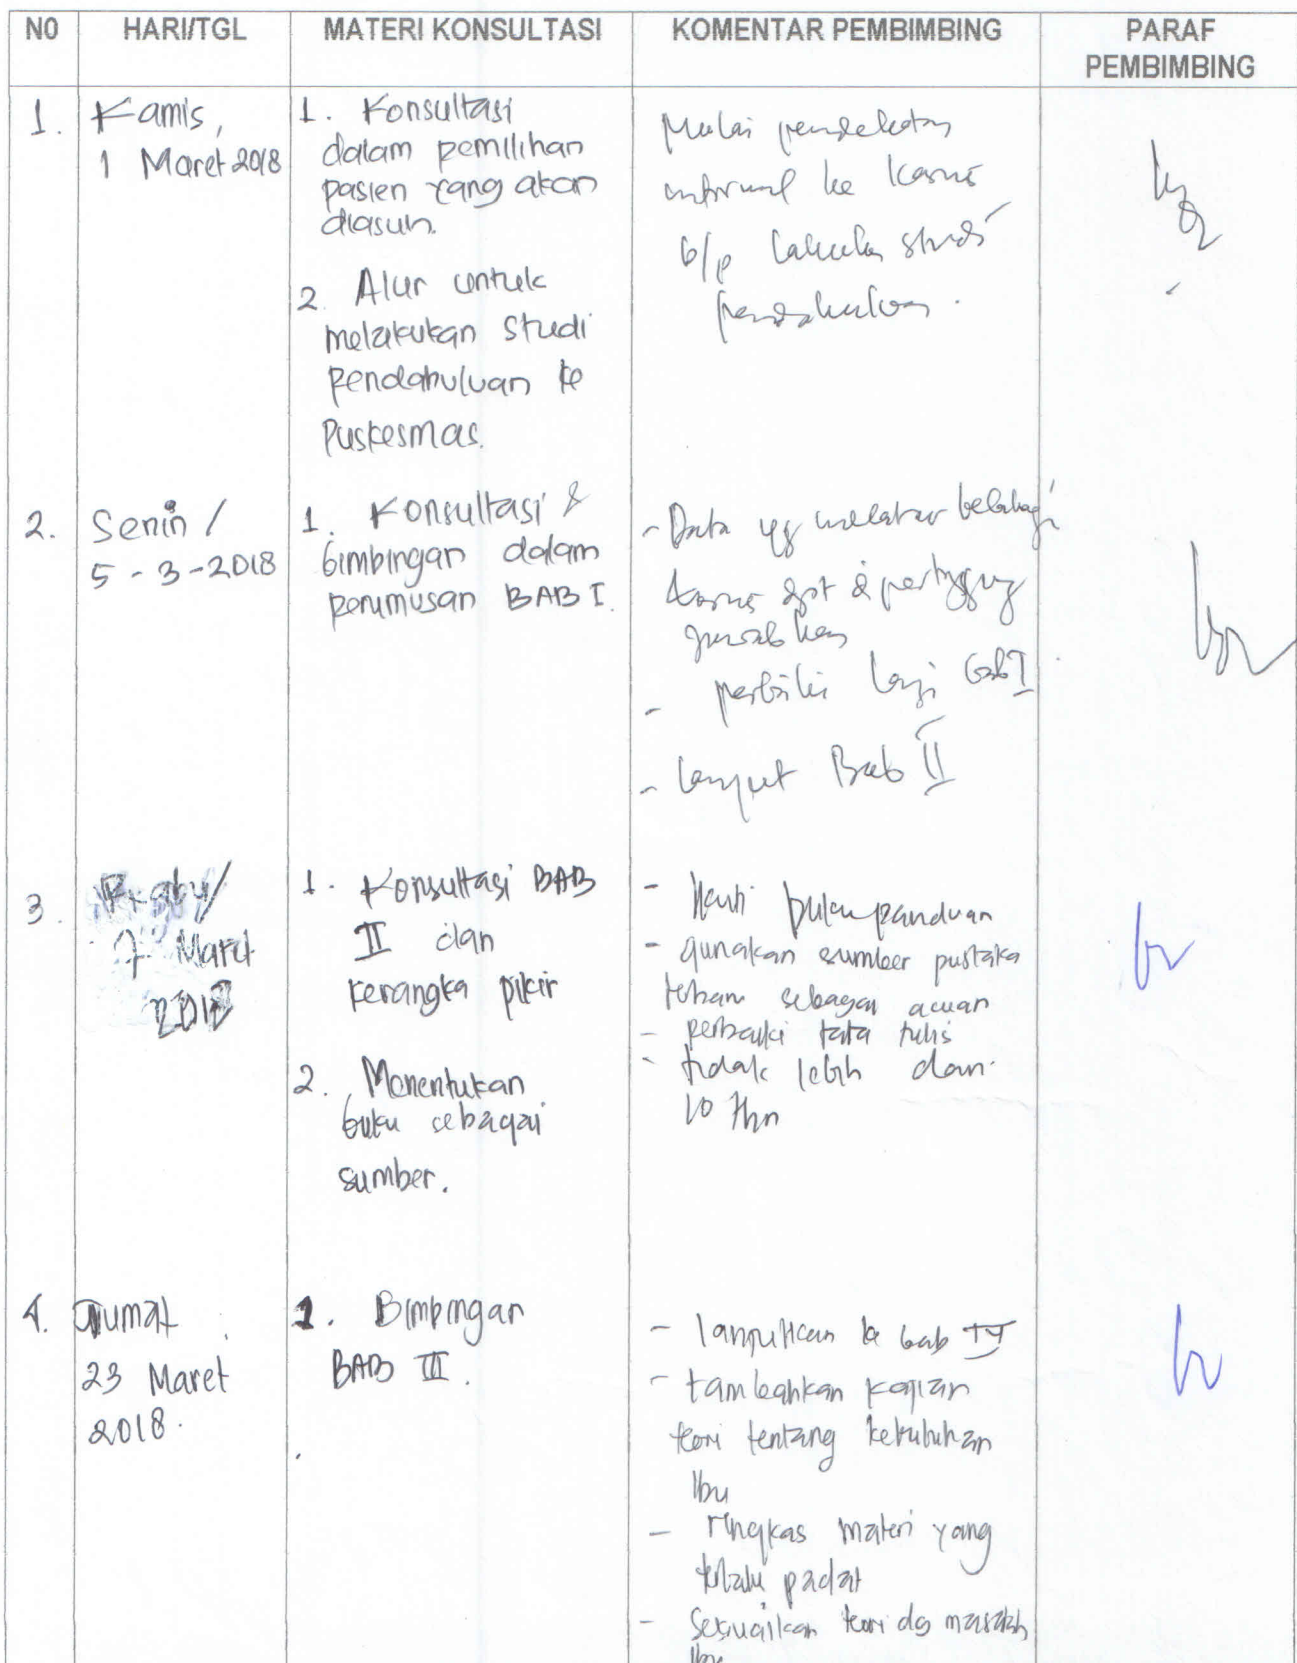 NO HARI/TGL MATERI KONSULTASI KOMENTAR PEMBIMBING PARAF
PEMBIMBING
1. Kamis,
1 Maret 2018
1. Konsultasi
dalam pemilihan
pasien yang akan
diasuh.
2. Alur untuk
melakukan studi
pendahuluan ke
Puskesmas.
Mulai pendekatan
informal ke kasus
b/p lakukan studi
pendahuluan.
2. Senin /
5-3-2018
1. Konsultasi &
bimbingan dalam
perumusan BAB I.
- Data yg melatar belakagi
kasus dpt dipertanggung
jawabkan
- perbaiki lagi bab I
- lanjut Bab II
3. Rabu/
7 Maret
2018
1. Konsultasi BAB
II dan
kerangka pikir
2. Menentukan
buku sebagai
sumber.
- buku panduan
- gunakan sumber pustaka
sebagai acuan
- perbaiki tata tulis
- tidak lebih dari
10 thn
4. Jumat
23 Maret
2018.
1. Bimbingan
BAB III.
- lanjutkan ke bab IV
- tambahkan kajian
teori tentang kebutuhan
Ibu
- ringkas materi yang
terlalu padat
- Sesuaikan teori dg masalah
Ibu